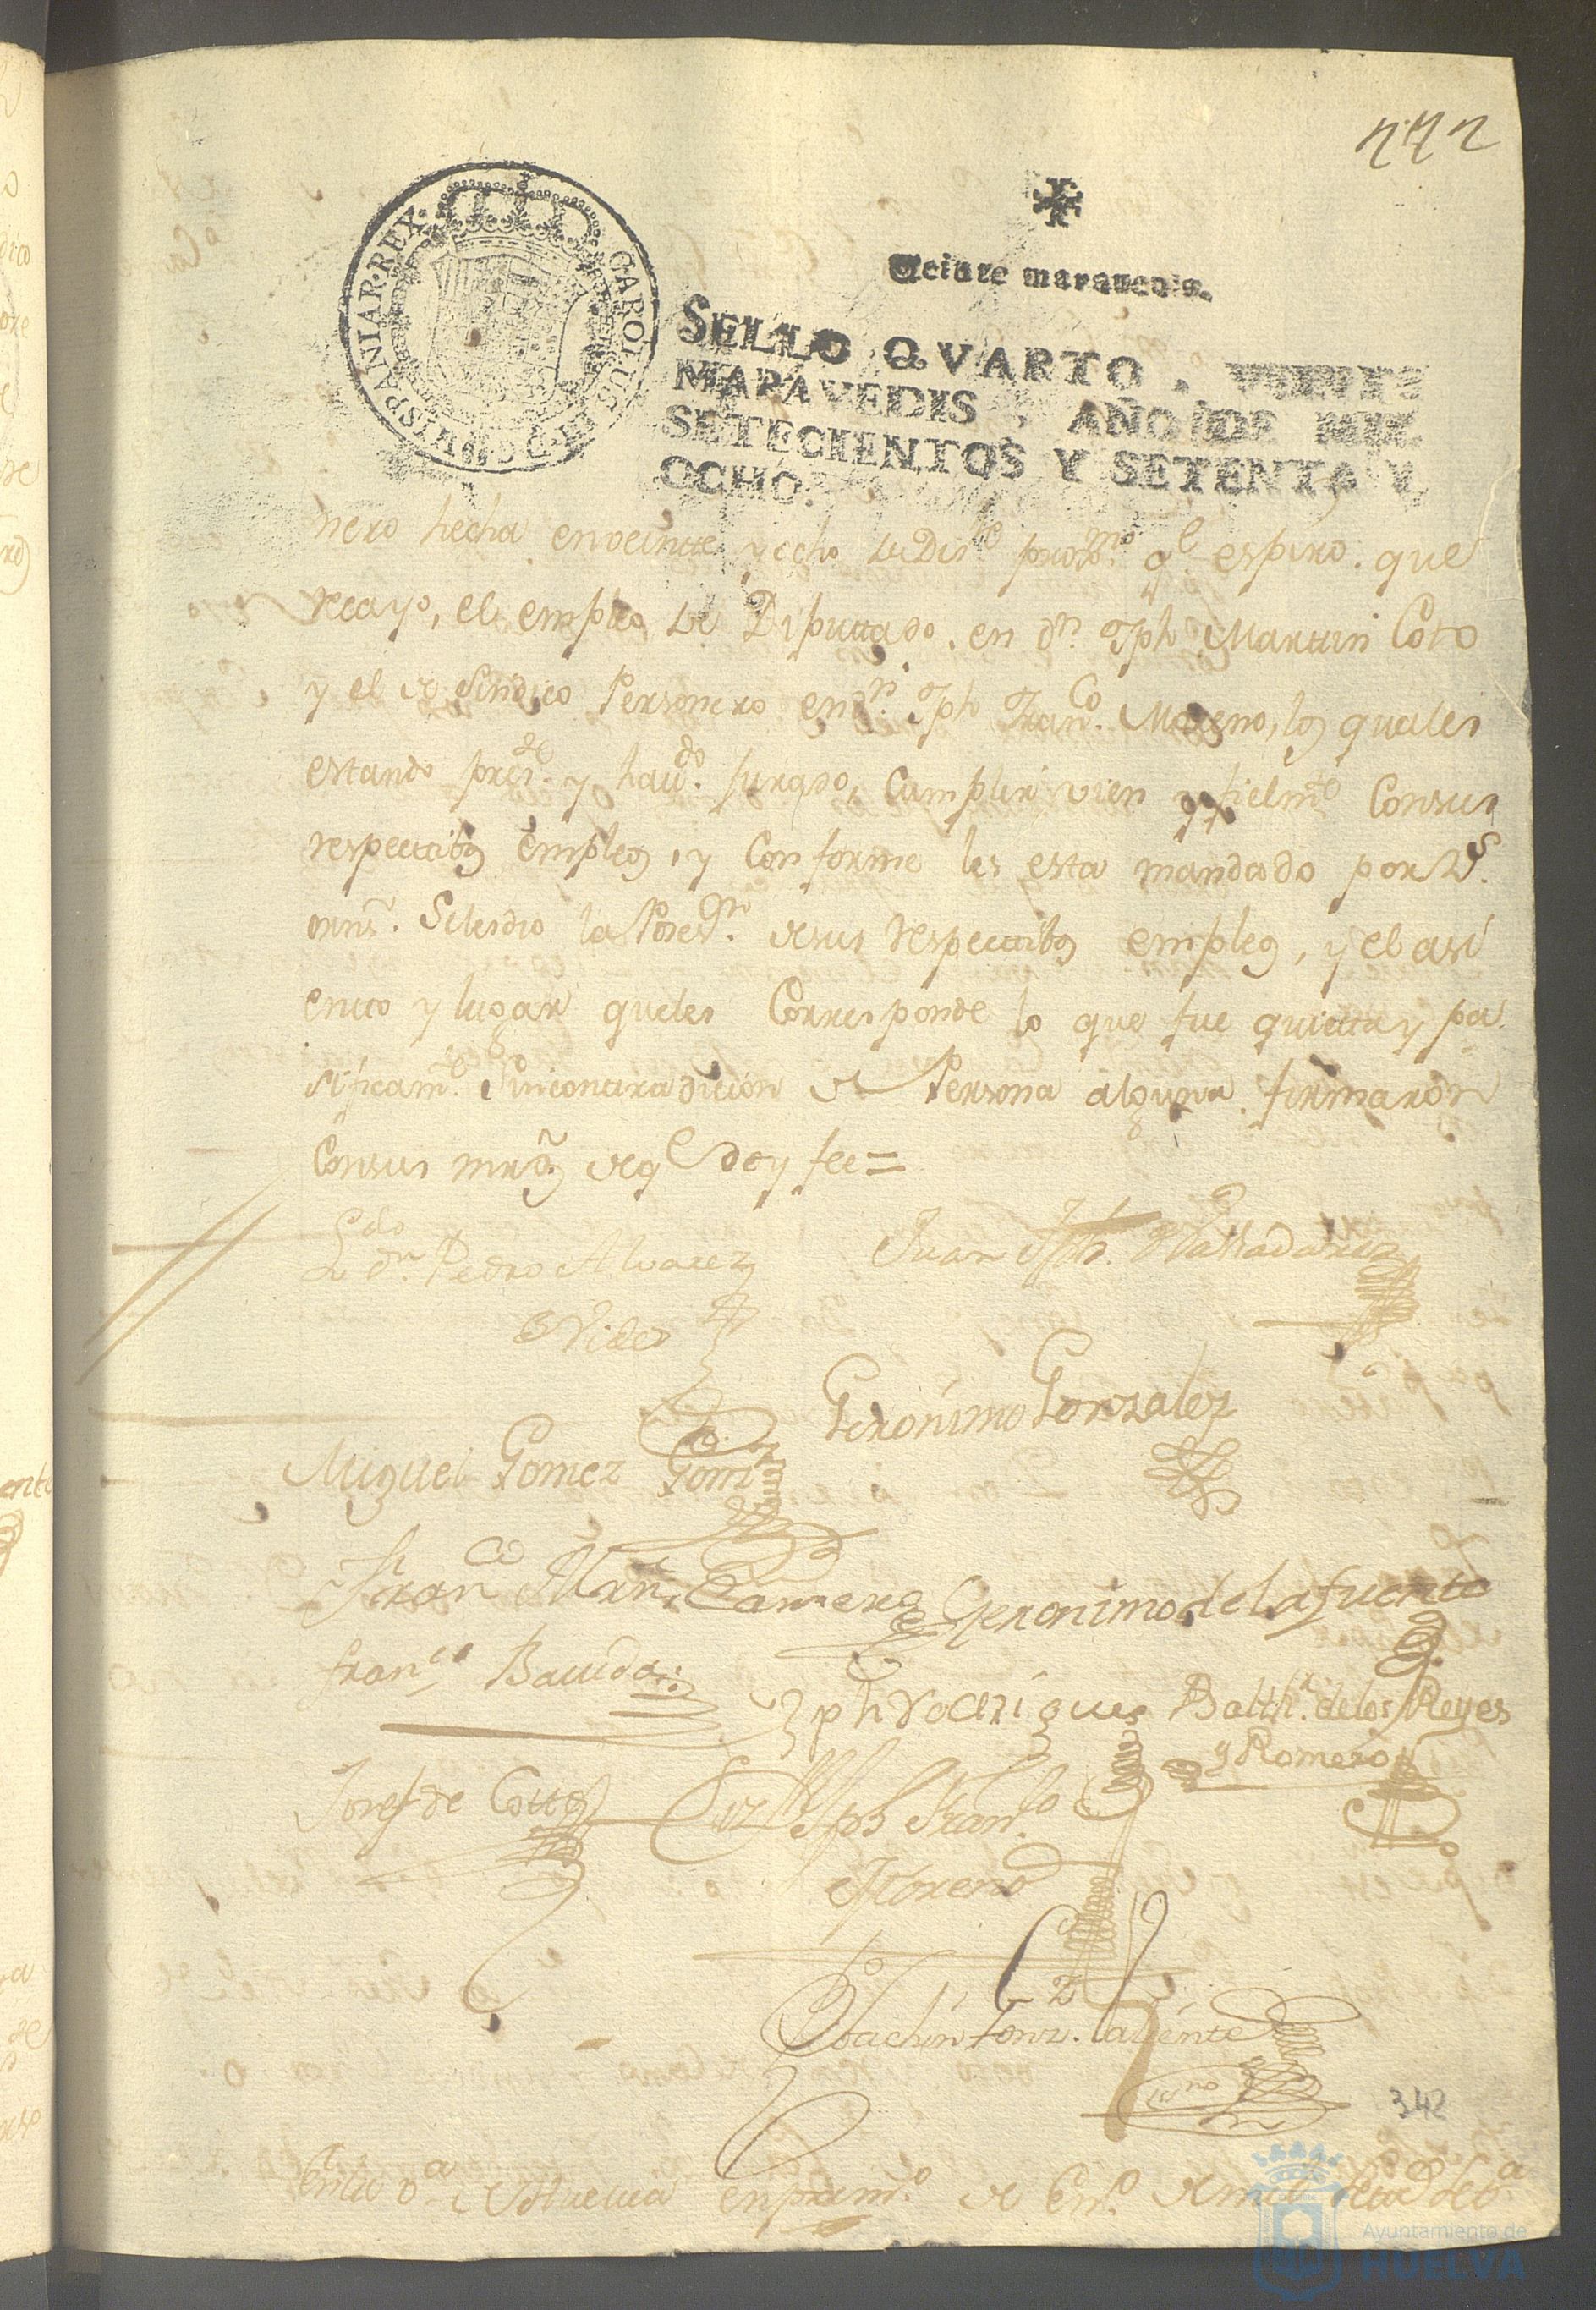 Veinte maravedis.
SELLO QVARTO, VEINTE
MARAVEDIS, AÑO DE MIL
SETECIENTOS Y SETENTA Y
OCHO.
CAROLUS III D.G. HISPANIAR. REX.
nero hecha en veinte y ocho de Dis.re prox.mo q.e espiro. que
recayo, el empleo de Diputtado, en d.n Jph Martin Coto
y el de Sindico Personero en d.n Jph Fran.co Moreno, los quales
estando pres.tes y hav.do jurado, cumplir vien y fielm.te con sus
respecttibos empleos, y conforme les esta mandado por
Se les dio la Poses.on de sus respecttibos empleos, y el asi
ento y lugar que les corresponde lo que fue quietta y pa
sificam.te sin conttradicion de Persona alguna firmaron
con sus mrds de q.e doy fee=
L.do d.n Pedro Alvarez
Juan Jph. Valladares
Geronimo Gonzalez
Miguel Gomez
Fran.co Mar.n
Geronimo de la fuente
fran.co
Jph rodrigues
Balth.r de los Reyes
y Romero
Josef de Cotto
Jph Fran.co
Moreno
Joachin Gonz.z Caliente
342
En la v.a de Huelva en prim.o de En.o de mill
Ayuntamiento de
HUELVA